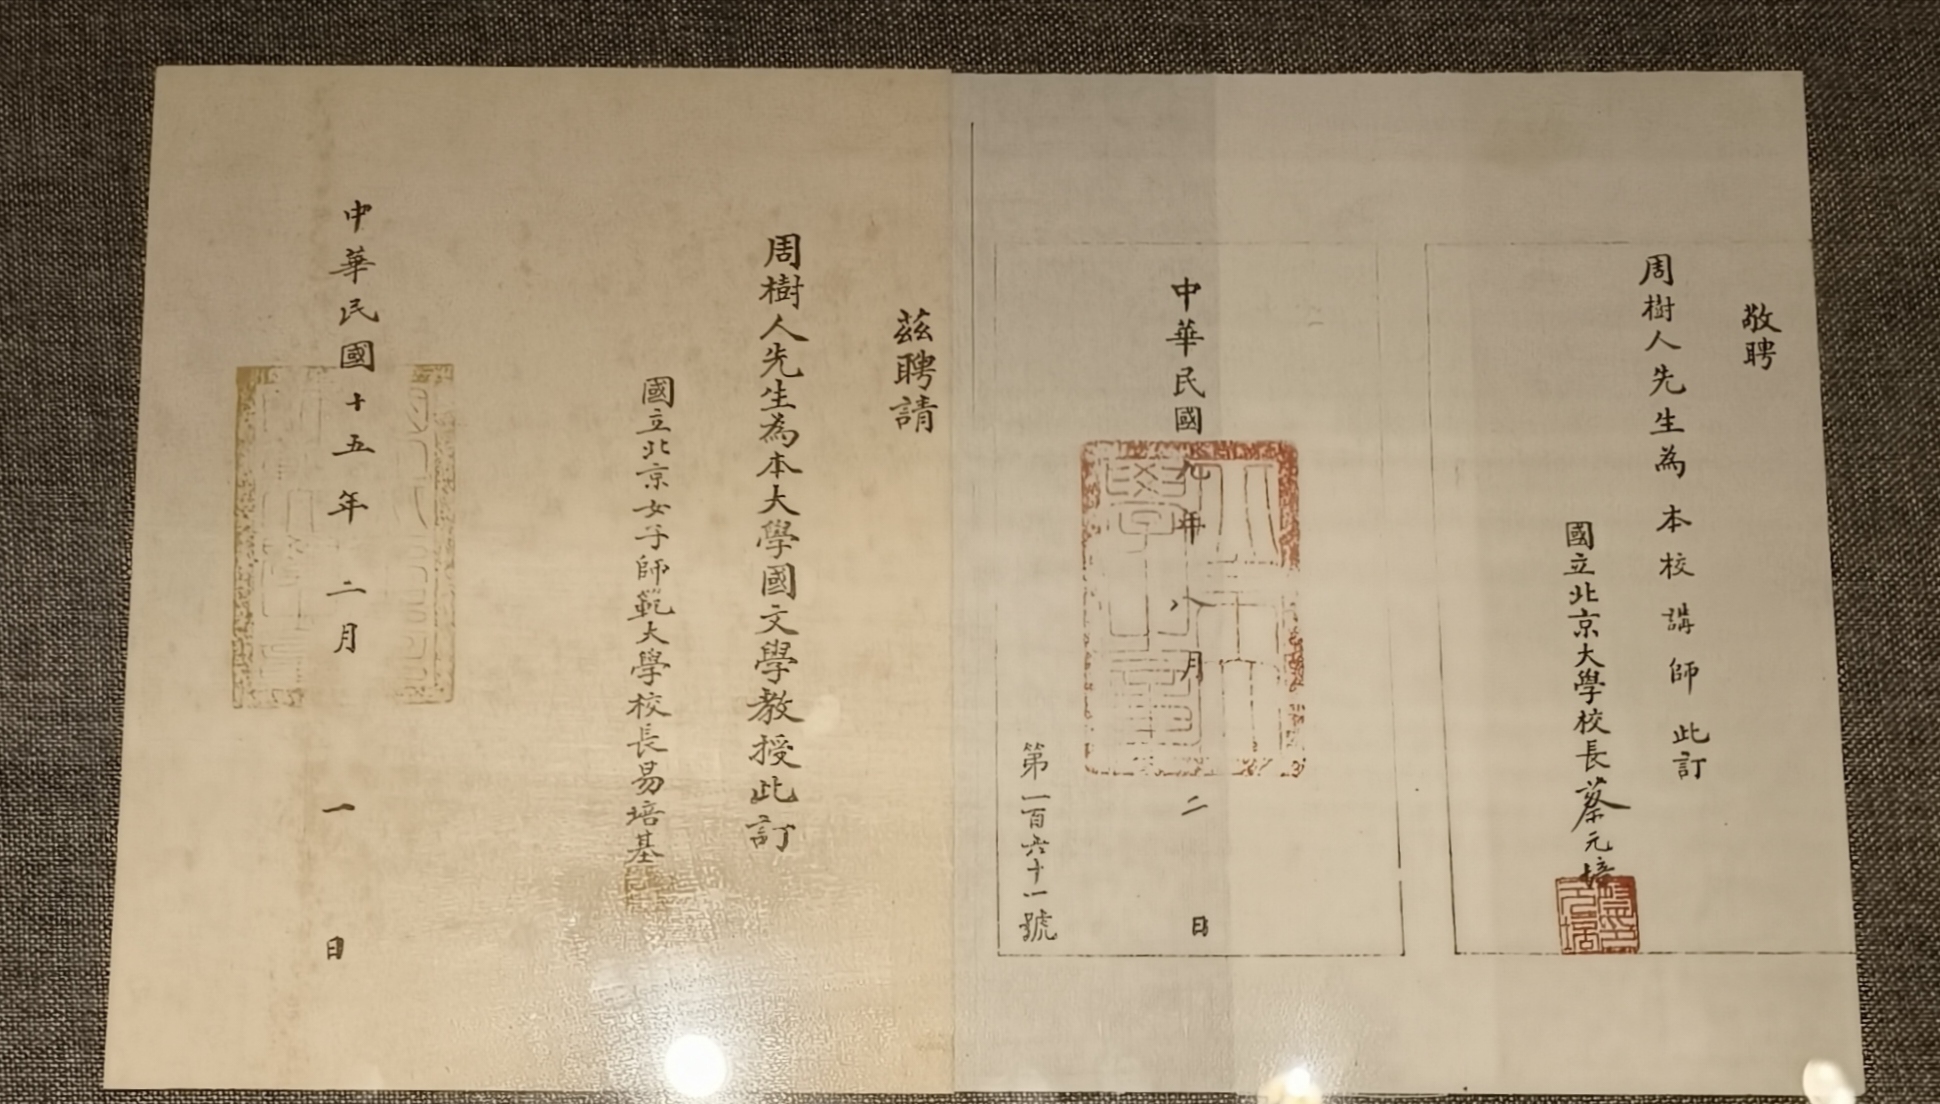 敬聘
周樹人先生為本校講師此訂
國立北京大學校長蔡元培
中華民國九年八月二日
第一百六十一號
茲聘請
周樹人先生為本大學國文學教授此訂
國立北京女子師範大學校長易培基
中華民國十五年二月一日